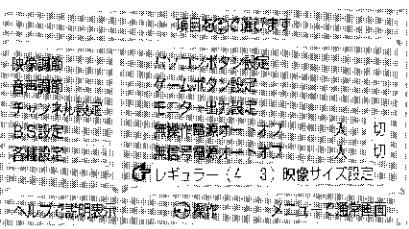 項目を で選びます
映像調節
音声調節
チャンネル設定
BS設定
各種設定
パソコンボタン設定
ゲームボタン設定
モニター出力設定
無操作電源オートオフ 入 切
無信号電源オートオフ 入 切
レギュラー(4 3)映像サイズ設定
ヘルプで説明表示 操作 メニューで通常画面